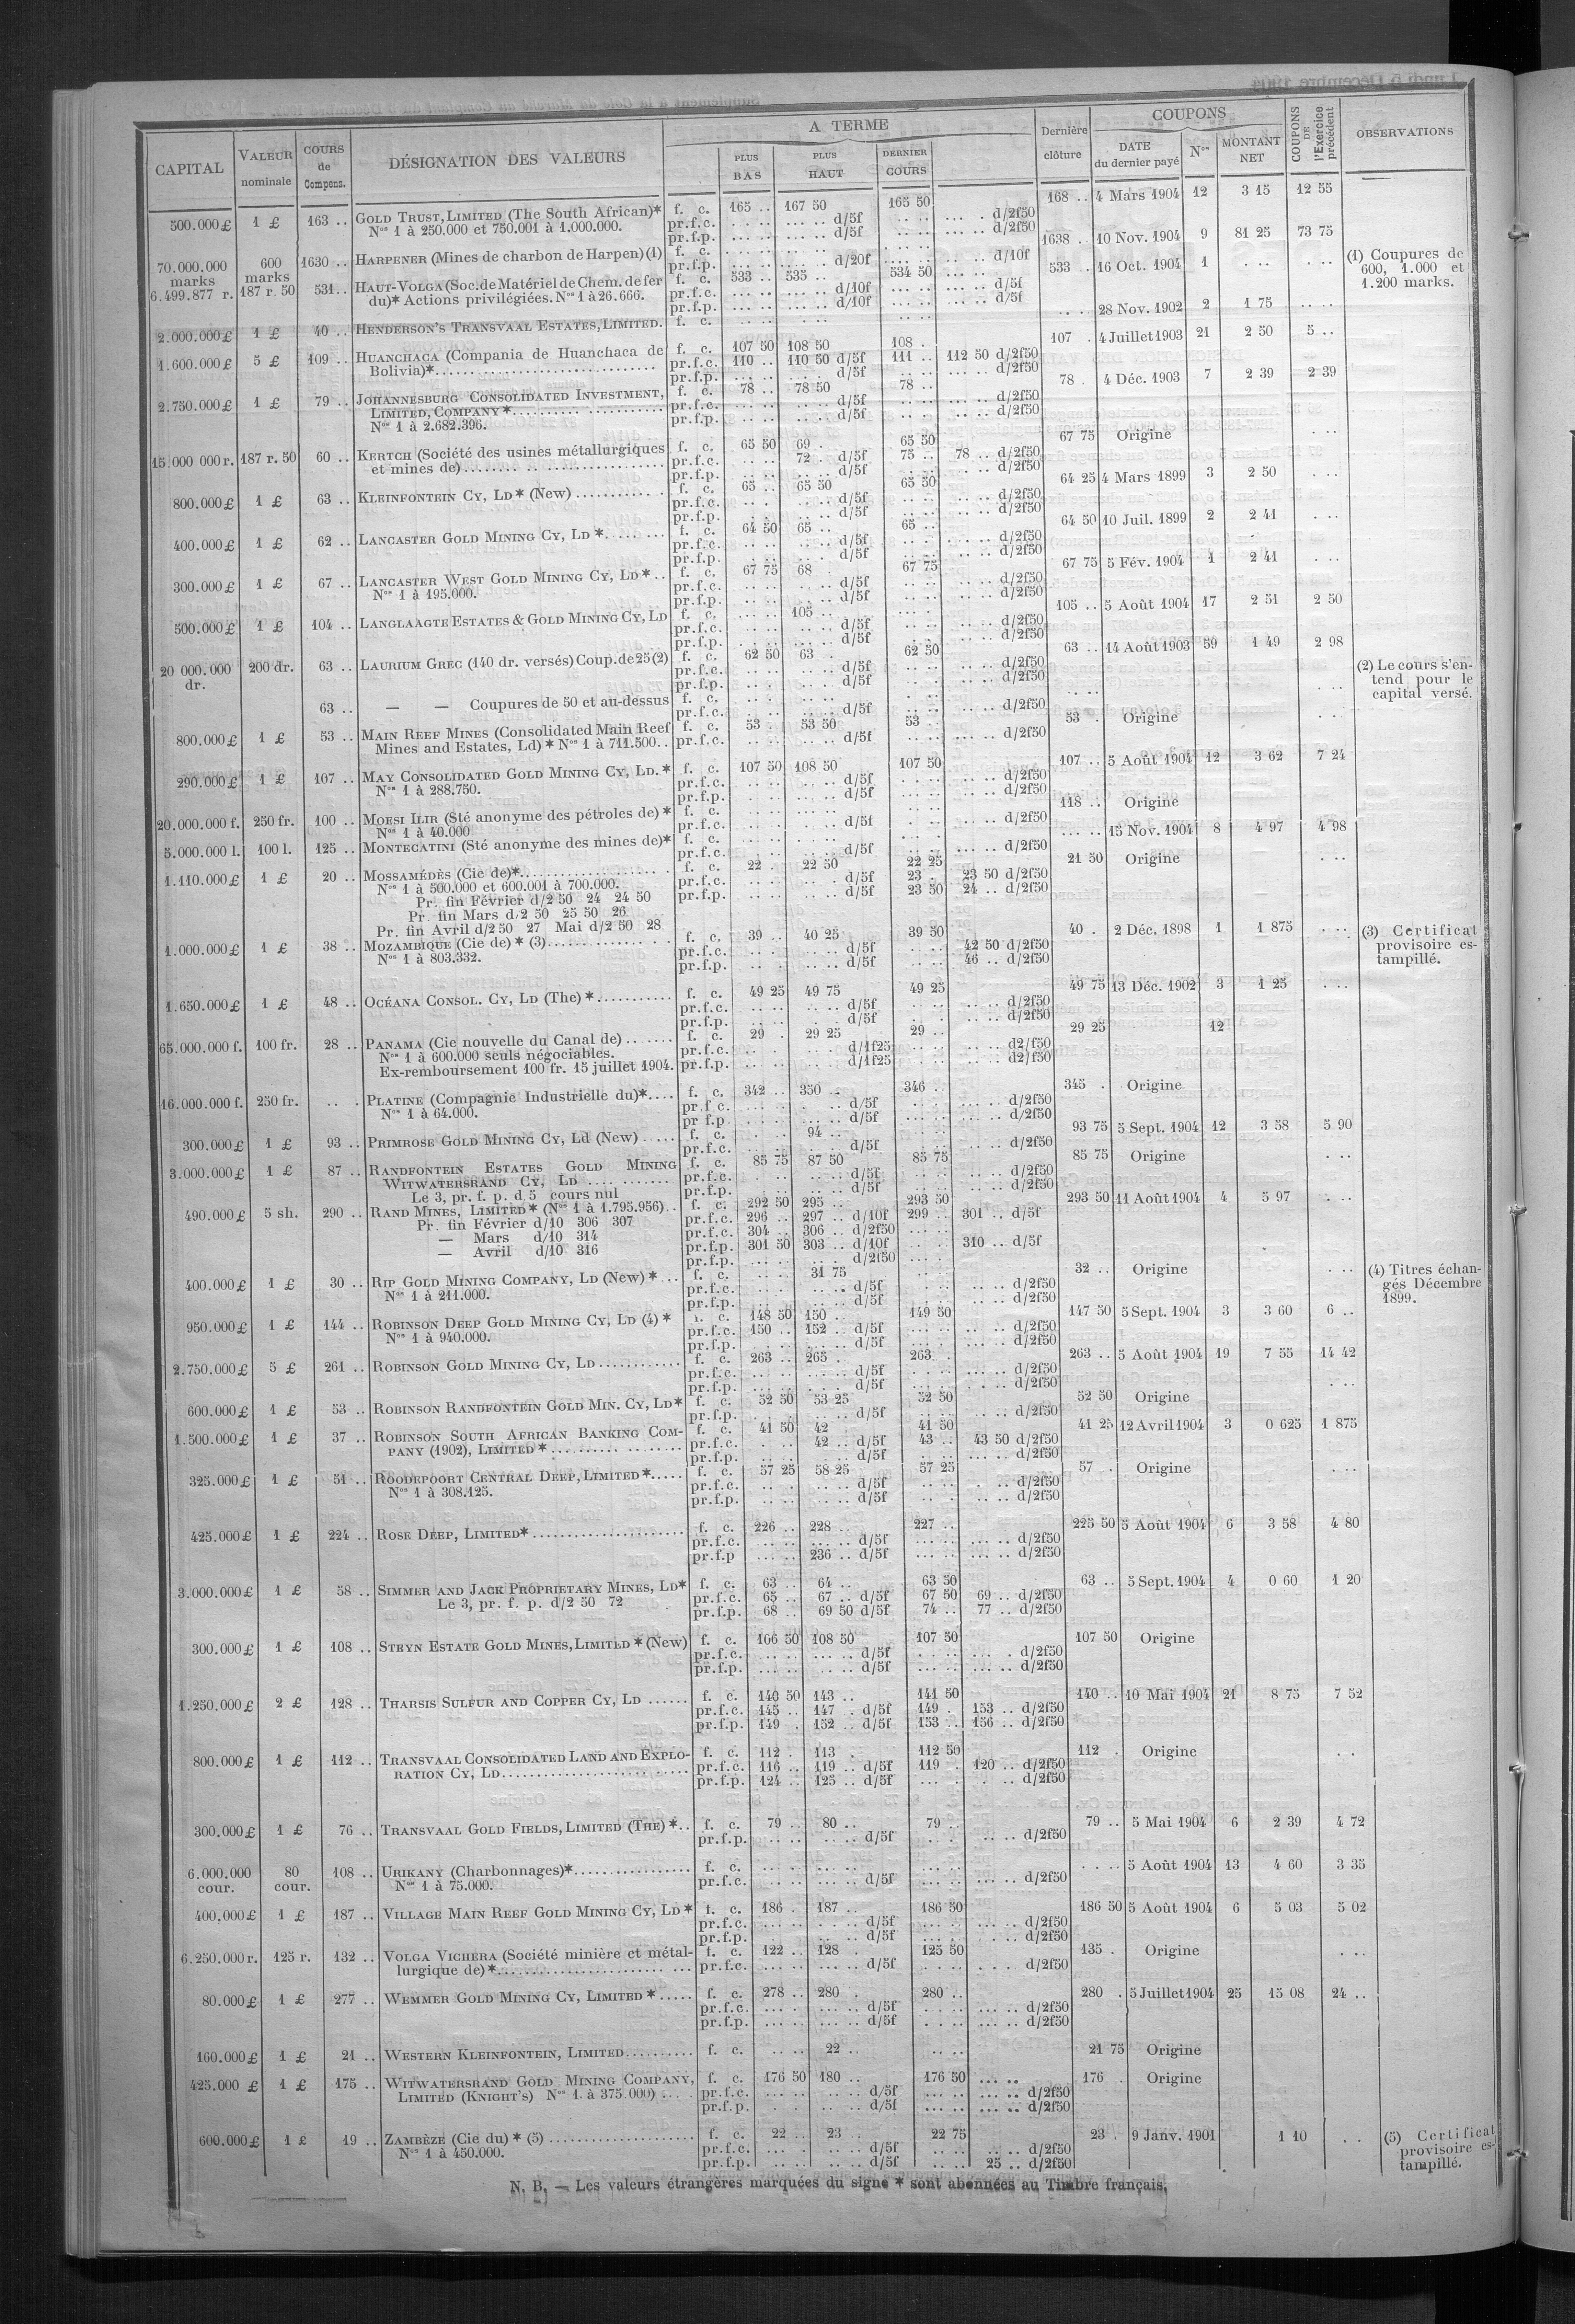 CAPITAL | VALEUR nominale | COURS de Compens. | DÉSIGNATION DES VALEURS | A TERME | PLUS BAS | PLUS HAUT | DERNIER COURS | Dernière clôture | COUPONS | DATE du dernier payé | Nos | MONTANT NET | COUPONS DE l'Exercice précédent | OBSERVATIONS
500.000 £ | 1 £ | 163 .. | GOLD TRUST, LIMITED (The South African)* | f. c. | 165 .. | 167 50 | 165 50 | 168 .. | 4 Mars 1904 | 12 | 3 15 | 12 55
Nos 1 à 250.000 et 750.001 à 1.000.000. | pr.f.c. | d/5f | d/2f50
pr.f.p. | d/5f | d/2f50
70.000.000 marks | 600 marks | 1630 .. | HARPENER (Mines de charbon de Harpen) (1) | f. c. | 1638 .. | 10 Nov. 1904 | 9 | 81 25 | 73 75 | (1) Coupures de 600, 1.000 et 1.200 marks.
pr.f.p. | d/20f | d/10f
6.499.877 r. | 187 r. 50 | 531 .. | HAUT-VOLGA (Soc. de Matériel de Chem. de fer | f. c. | 533 .. | 535 .. | 534 50 | 533 . | 16 Oct. 1904 | 1
du)* Actions privilégiées. Nos 1 à 26.666. | pr.f.c. | d/10f | d/5f
pr.f.p. | d/10f | d/5f
2.000.000 £ | 1 £ | 40 .. | HENDERSON'S TRANSVAAL ESTATES, LIMITED. | f. c. | 28 Nov. 1902 | 2 | 1 75
1.600.000 £ | 5 £ | 109 .. | HUANCHACA (Compania de Huanchaca de | f. c. | 107 50 | 108 50 | 108 . | 107 . | 4 Juillet 1903 | 21 | 2 50 | 5 ..
Bolivia)* | pr.f.c. | 110 .. | 110 50 d/5f | 111 .. | 112 50 d/2f50
pr.f.p. | d/5f | d/2f50
2.750.000 £ | 1 £ | 79 .. | JOHANNESBURG CONSOLIDATED INVESTMENT, | f. c. | 78 .. | 78 50 | 78 .. | 78 . | 4 Déc. 1903 | 7 | 2 39 | 2 39
LIMITED, COMPANY* | pr.f.c. | d/5f | d/2f50
Nos 1 à 2.682.396. | pr.f.p. | d/5f | d/2f50
15.000 000 r. | 187 r. 50 | 60 .. | KERTCH (Société des usines métallurgiques | f. c. | 65 50 | 69 . | 65 50 | 67 75 | Origine
et mines de) | pr.f.c. | 72 . d/5f | 75 .. | 78 .. d/2f50
pr.f.p. | d/5f | d/2f50
800.000 £ | 1 £ | 63 .. | KLEINFONTEIN CY, LD* (New) | f. c. | 65 .. | 65 50 | 65 50 | 64 25 | 4 Mars 1899 | 3 | 2 50
pr.f.c. | d/5f | d/2f50
pr.f.p. | d/5f | d/2f50
400.000 £ | 1 £ | 62 .. | LANCASTER GOLD MINING CY, LD * | f. c. | 64 50 | 65 .. | 65 .. | 64 50 | 10 Juil. 1899 | 2 | 2 41
pr.f.c. | d/5f | d/2f50
pr.f.p. | d/5f | d/2f50
300.000 £ | 1 £ | 67 .. | LANCASTER WEST GOLD MINING CY, LD* | f. c. | 67 75 | 68 . | 67 75 | 67 75 | 5 Fév. 1904 | 1 | 2 41
Nos 1 à 195.000. | pr.f.c. | d/5f | d/2f50
pr.f.p. | d/5f | d/2f50
500.000 £ | 1 £ | 104 .. | LANGLAAGTE ESTATES & GOLD MINING CY, LD | f. c. | 105 .. | 105 .. | 5 Août 1904 | 17 | 2 51 | 2 50
pr.f.c. | d/5f | d/2f50
pr.f.p. | d/5f | d/2f50
20 000.000 dr. | 200 dr. | 63 .. | LAURIUM GREC (140 dr. versés) Coup. de 25 (2) | f. c. | 62 50 | 63 . | 62 50 | 63 .. | 14 Août 1903 | 59 | 1 49 | 2 98 | (2) Le cours s'entend pour le capital versé.
pr.f.c. | d/5f | d/2f50
pr.f.p. | d/5f | d/2f50
63 .. | — — Coupures de 50 et au-dessus | f. c.
pr.f.c. | d/5f | d/2f50
800.000 £ | 1 £ | 53 .. | MAIN REEF MINES (Consolidated Main Reef | f. c. | 53 . | 53 50 | 53 .. | 53 . | Origine
Mines and Estates, Ld)* Nos 1 à 711.500 | pr.f.c. | d/5f | d/2f50
290.000 £ | 1 £ | 107 .. | MAY CONSOLIDATED GOLD MINING CY, LD.* | f. c. | 107 50 | 108 50 | 107 50 | 107 .. | 5 Août 1904 | 12 | 3 62 | 7 24
Nos 1 à 288.750. | pr.f.c. | d/5f | d/2f50
pr.f.p. | d/5f | d/2f50
20.000.000 f. | 250 fr. | 100 .. | MOESI ILIR (Sté anonyme des pétroles de)* | f. c. | 118 .. | Origine
Nos 1 à 40.000 | pr.f.c. | d/5f | d/2f50
5.000.000 l. | 100 l. | 125 .. | MONTECATINI (Sté anonyme des mines de)* | f. c. | 15 Nov. 1904 | 8 | 4 97 | 4 98
pr.f.c. | d/5f | d/2f50
1.110.000 £ | 1 £ | 20 .. | MOSSAMÉDÈS (Cie de)* | f. c. | 22 . | 22 50 | 22 25 | 21 50 | Origine
Nos 1 à 500.000 et 600.001 à 700.000. | pr.f.c. | d/5f | 23 . | 23 50 d/2f50
Pr. fin Février d/2 50 24 24 50 | pr.f.p. | d/5f | 23 50 | 24 .. d/2f50
Pr. fin Mars d/2 50 25 50 26
Pr. fin Avril d/2 50 27 Mai d/2 50 28
1.000.000 £ | 1 £ | 38 .. | MOZAMBIQUE (Cie de) * (3) | f. c. | 39 .. | 40 25 | 39 50 | 40 . | 2 Déc. 1898 | 1 | 1 875 | (3) Certificat provisoire estampillé.
Nos 1 à 803.332. | pr.f.c. | d/5f | 42 50 d/2f50
pr.f.p. | d/5f | 46 .. d/2f50
1.650.000 £ | 1 £ | 48 .. | OCÉANA CONSOL. CY, LD (The) * | f. c. | 49 25 | 49 75 | 49 25 | 49 75 | 13 Déc. 1902 | 3 | 1 25
pr.f.c. | d/5f | d/2f50
pr.f.p. | d/5f | d/2f50
65.000.000 f. | 100 fr. | 28 .. | PANAMA (Cie nouvelle du Canal de) | f. c. | 29 . | 29 25 | 29 .. | 29 25 | 12
Nos 1 à 600.000 seuls négociables. | pr.f.c. | d/1f25 | d2/f50
Ex-remboursement 100 fr. 15 juillet 1904. | pr.f.p. | d/1f25 | d2/f50
16.000.000 f. | 250 fr. | PLATINE (Compagnie Industrielle du)* | f. c. | 342 .. | 350 .. | 346 .. | 345 . | Origine
Nos 1 à 64.000. | pr f c. | d/5f | d/2f50
pr f p. | d/5f | d/2f50
300.000 £ | 1 £ | 93 .. | PRIMROSE GOLD MINING CY, Ld (New) | f. c. | 94 .. | 93 75 | 5 Sept. 1904 | 12 | 3 58 | 5 90
pr.f.c. | d/5f | d/2f50
3.000.000 £ | 1 £ | 87 .. | RANDFONTEIN ESTATES GOLD MINING | f. c. | 85 75 | 87 50 | 85 75 | 85 75 | Origine
WITWATERSRAND CY, LD | pr.f.c. | d/5f | d/2f50
Le 3, pr. f. p. d 5 cours nul | pr.f.p. | d/5f | d/2f50
490.000 £ | 5 sh. | 290 .. | RAND MINES, LIMITED* (Nos 1 à 1.795.956) | f. c. | 292 50 | 295 .. | 293 50 | 293 50 | 11 Août 1904 | 4 | 5 97
Pr. fin Février d/10 306 307 | pr.f.c. | 296 .. | 297 .. d/10f | 299 .. | 301 .. d/5f
— Mars d/10 314 | pr.f.c. | 304 .. | 306 .. d/2f50
— Avril d/10 316 | pr.f.p. | 301 50 | 303 .. d/10f | 310 .. d/5f
pr.f.p. | d/2f50
400.000 £ | 1 £ | 30 .. | RIP GOLD MINING COMPANY, LD (New) * | f. c. | 31 75 | 32 .. | Origine | (4) Titres échangés Décembre 1899.
Nos 1 à 211.000. | pr.f.c. | d/5f | d/2f50
pr.f.p. | d/5f | d/2f50
950.000 £ | 1 £ | 144 .. | ROBINSON DEEP GOLD MINING CY, LD (4) * | f. c. | 148 50 | 150 .. | 149 50 | 147 50 | 5 Sept. 1904 | 3 | 3 60 | 6 ..
Nos 1 à 940.000. | pr.f.c. | 150 .. | 152 .. d/5f | d/2f50
pr.f.p. | d/5f | d/2f50
2.750.000 £ | 5 £ | 261 .. | ROBINSON GOLD MINING CY, LD | f. c. | 263 .. | 265 . | 263 . | 263 .. | 5 Août 1904 | 19 | 7 55 | 14 42
pr.f.c. | d/5f | d/2f50
pr.f.p. | d/5f | d/2f50
600.000 £ | 1 £ | 53 .. | ROBINSON RANDFONTEIN GOLD MIN. CY, LD* | f. c. | 52 50 | 53 25 | 52 50 | 52 50 | Origine
pr.f.p. | d/5f | d/2f50
1.500.000 £ | 1 £ | 37 .. | ROBINSON SOUTH AFRICAN BANKING COM- | f. c. | 41 50 | 42 | 41 50 | 41 25 | 12 Avril 1904 | 3 | 0 625 | 1 875
PANY (1902), LIMITED * | pr.f.c. | 42 .. d/5f | 43 .. | 43 50 d/2f50
pr.f.p. | d/5f | d/2f50
325.000 £ | 1 £ | 51 .. | ROODEPOORT CENTRAL DEEP, LIMITED * | f. c. | 57 25 | 58 25 | 57 25 | 57 . | Origine
Nos 1 à 308.125. | pr.f.c. | d/5f | d/2f50
pr.f.p. | d/5f | d/2f50
425.000 £ | 1 £ | 224 .. | ROSE DEEP, LIMITED* | f. c. | 226 .. | 228 .. | 227 .. | 225 50 | 5 Août 1904 | 6 | 3 58 | 4 80
pr.f.c. | d/5f | d/2f50
pr.f.p | 236 .. d/5f | d/2f50
3.000.000 £ | 1 £ | 58 .. | SIMMER AND JACK PROPRIETARY MINES, LD* | f. c. | 63 .. | 64 .. | 63 50 | 63 .. | 5 Sept. 1904 | 4 | 0 60 | 1 20
Le 3, pr. f. p. d/2 50 72 | pr.f.c. | 65 .. | 67 .. d/5f | 67 50 | 69 .. d/2f50
pr.f.p. | 68 .. | 69 50 d/5f | 74 .. | 77 .. d/2f50
300.000 £ | 1 £ | 108 .. | STEYN ESTATE GOLD MINES, LIMITED * (New) | f. c. | 106 50 | 108 50 | 107 50 | 107 50 | Origine
pr.f.c. | d/5f | d/2f50
pr.f.p. | d/5f | d/2f50
1.250.000 £ | 2 £ | 128 .. | THARSIS SULFUR AND COPPER CY, LD | f. c. | 140 50 | 143 .. | 141 50 | 140 .. | 10 Mai 1904 | 21 | 8 75 | 7 52
pr.f.c. | 145 .. | 147 . d/5f | 149 . | 153 .. d/2f50
pr.f.p. | 149 . | 152 .. d/5f | 153 .. | 156 .. d/2f50
800.000 £ | 1 £ | 112 .. | TRANSVAAL CONSOLIDATED LAND AND EXPLO- | f. c. | 112 . | 113 . | 112 50 | 112 . | Origine
RATION CY, LD | pr.f.c. | 116 .. | 119 .. d/5f | 119 . | 120 .. d/2f50
pr.f.p. | 124 .. | 125 .. d/5f | d/2f50
300.000 £ | 1 £ | 76 .. | TRANSVAAL GOLD FIELDS, LIMITED (THE) * | f. c. | 79 .. | 80 .. | 79 .. | 79 .. | 5 Mai 1904 | 6 | 2 39 | 4 72
pr.f.p. | d/5f | d/2f50
6.000.000 cour. | 80 cour. | 108 .. | URIKANY (Charbonnages)* | f. c. | 5 Août 1904 | 13 | 4 60 | 3 35
Nos 1 à 75.000. | pr.f.c. | d/5f | d/2f50
400.000 £ | 1 £ | 187 .. | VILLAGE MAIN REEF GOLD MINING CY, LD * | f. c. | 186 . | 187 .. | 186 50 | 186 50 | 5 Août 1904 | 6 | 5 03 | 5 02
pr.f.c. | d/5f | d/2f50
pr.f.p. | d/5f | d/2f50
6.250.000 r. | 125 r. | 132 .. | VOLGA VICHERA (Société minière et métal- | f. c. | 122 .. | 128 . | 125 50 | 135 . | Origine
lurgique de) * | pr.f.c. | d/5f | d/2f50
80.000 £ | 1 £ | 277 .. | WEMMER GOLD MINING CY, LIMITED * | f. c. | 278 .. | 280 . | 280 .. | 280 . | 5 Juillet 1904 | 25 | 15 08 | 24 ..
pr.f.c. | d/5f | d/2f50
pr.f.p. | d/5f | d/2f50
160.000 £ | 1 £ | 21 .. | WESTERN KLEINFONTEIN, LIMITED | f. c. | 22 .. | 21 75 | Origine
425.000 £ | 1 £ | 175 .. | WITWATERSRAND GOLD MINING COMPANY, | f. c. | 176 50 | 180 .. | 176 50 | 176 . | Origine
LIMITED (KNIGHT'S) Nos 1. à 375.000) | pr.f.c. | d/5f | d/2f50
pr.f.p. | d/5f | d/2f50
600.000 £ | 1 £ | 19 .. | ZAMBÈZE (Cie du) * (5) | f. c. | 22 .. | 23 | 22 75 | 23 . | 9 Janv. 1901 | 1 10 | (5) Certificat provisoire estampillé.
Nos 1 à 450.000. | pr.f.c. | d/5f | d/2f50
pr.f.p. | d/5f | 25 .. d/2f50
N. B. — Les valeurs étrangères marquées du signe * sont abonnées au Timbre français.